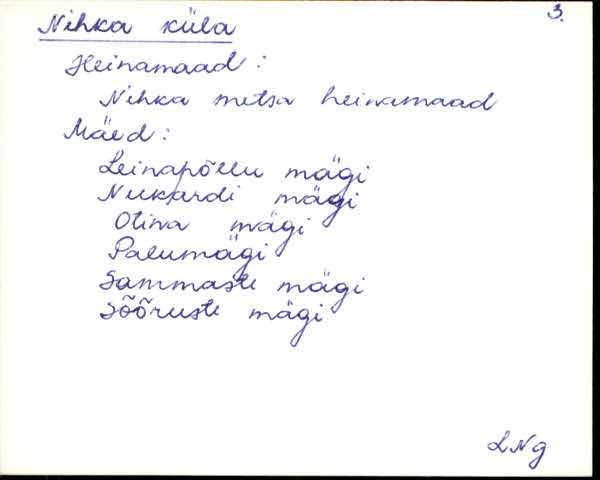 3.
Nihka küla
Heinamaad:
Nihka metsa heinamaad
Mäed:
Leinapõllu mägi
Nukardi mägi
Otina mägi
Palumägi
Sammaste mägi
Sõõruste mägi
LNg